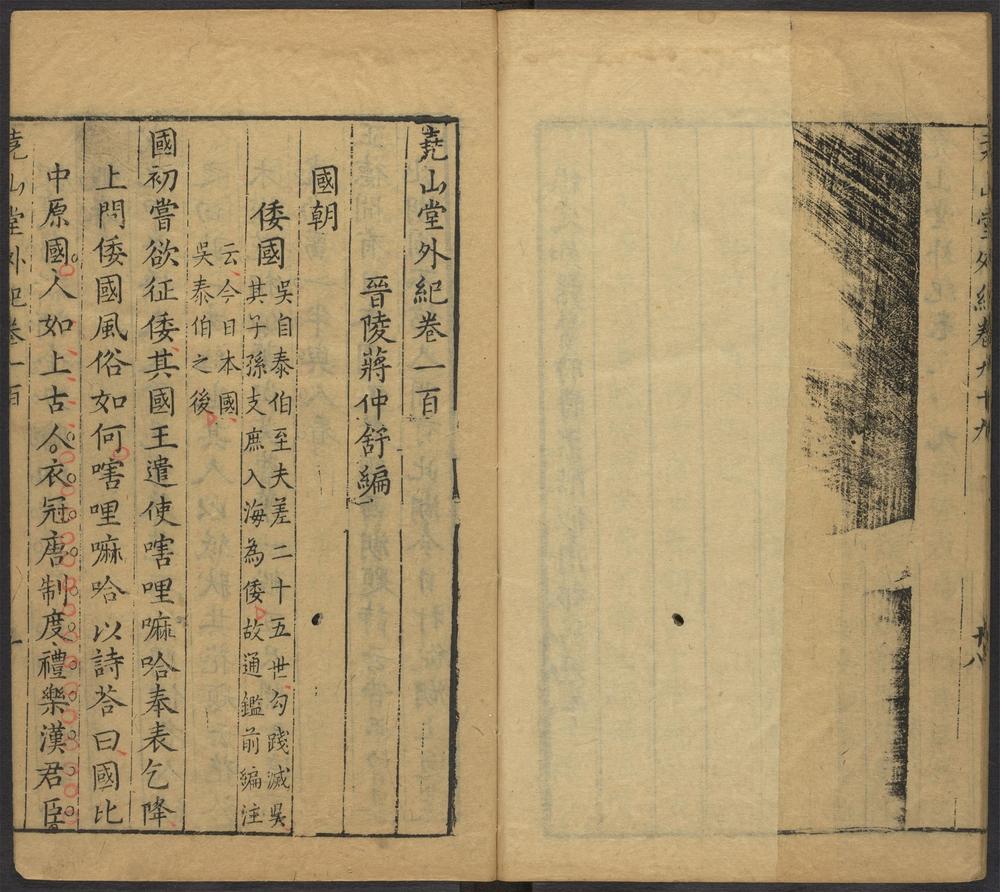 堯山堂外紀卷九十九
十八
堯山堂外紀卷一百
晉陵蔣仲舒編
國朝
倭國吳自泰伯至夫差二十五世勾踐滅吳
其子孫支庶入海為倭故通鑑前編注
云今日本國
吳泰伯之後
國初嘗欲征倭其國王遣使嗐哩嘛哈奉表乞降
上問倭國風俗如何嗐哩嘛哈以詩荅曰國比
中原國人如上古人衣冠唐制度禮樂漢君臣
堯山堂外紀卷一百